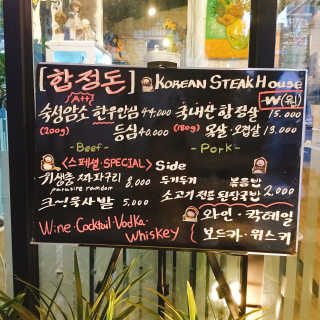 [합정돈] KOREAN STEAK HOUSE
[A++] ₩(원)
숙성암소 한우안심 44,000 국내산 항정살 15.000
(200g) 등심 40.000 (180g) 목살·오겹살 13.000
- Beef - - Pork -
<스페셜·SPECIAL> Side
기생충 짜파구리 8,000 둑기둑기 볶음밥
parasite ramdon 소고기 전통 된장국밥 2,000
크~! 육사발 5,000 와인·칵테일
Wine·Cocktail·Vodka· 보드카·위스키
Whiskey